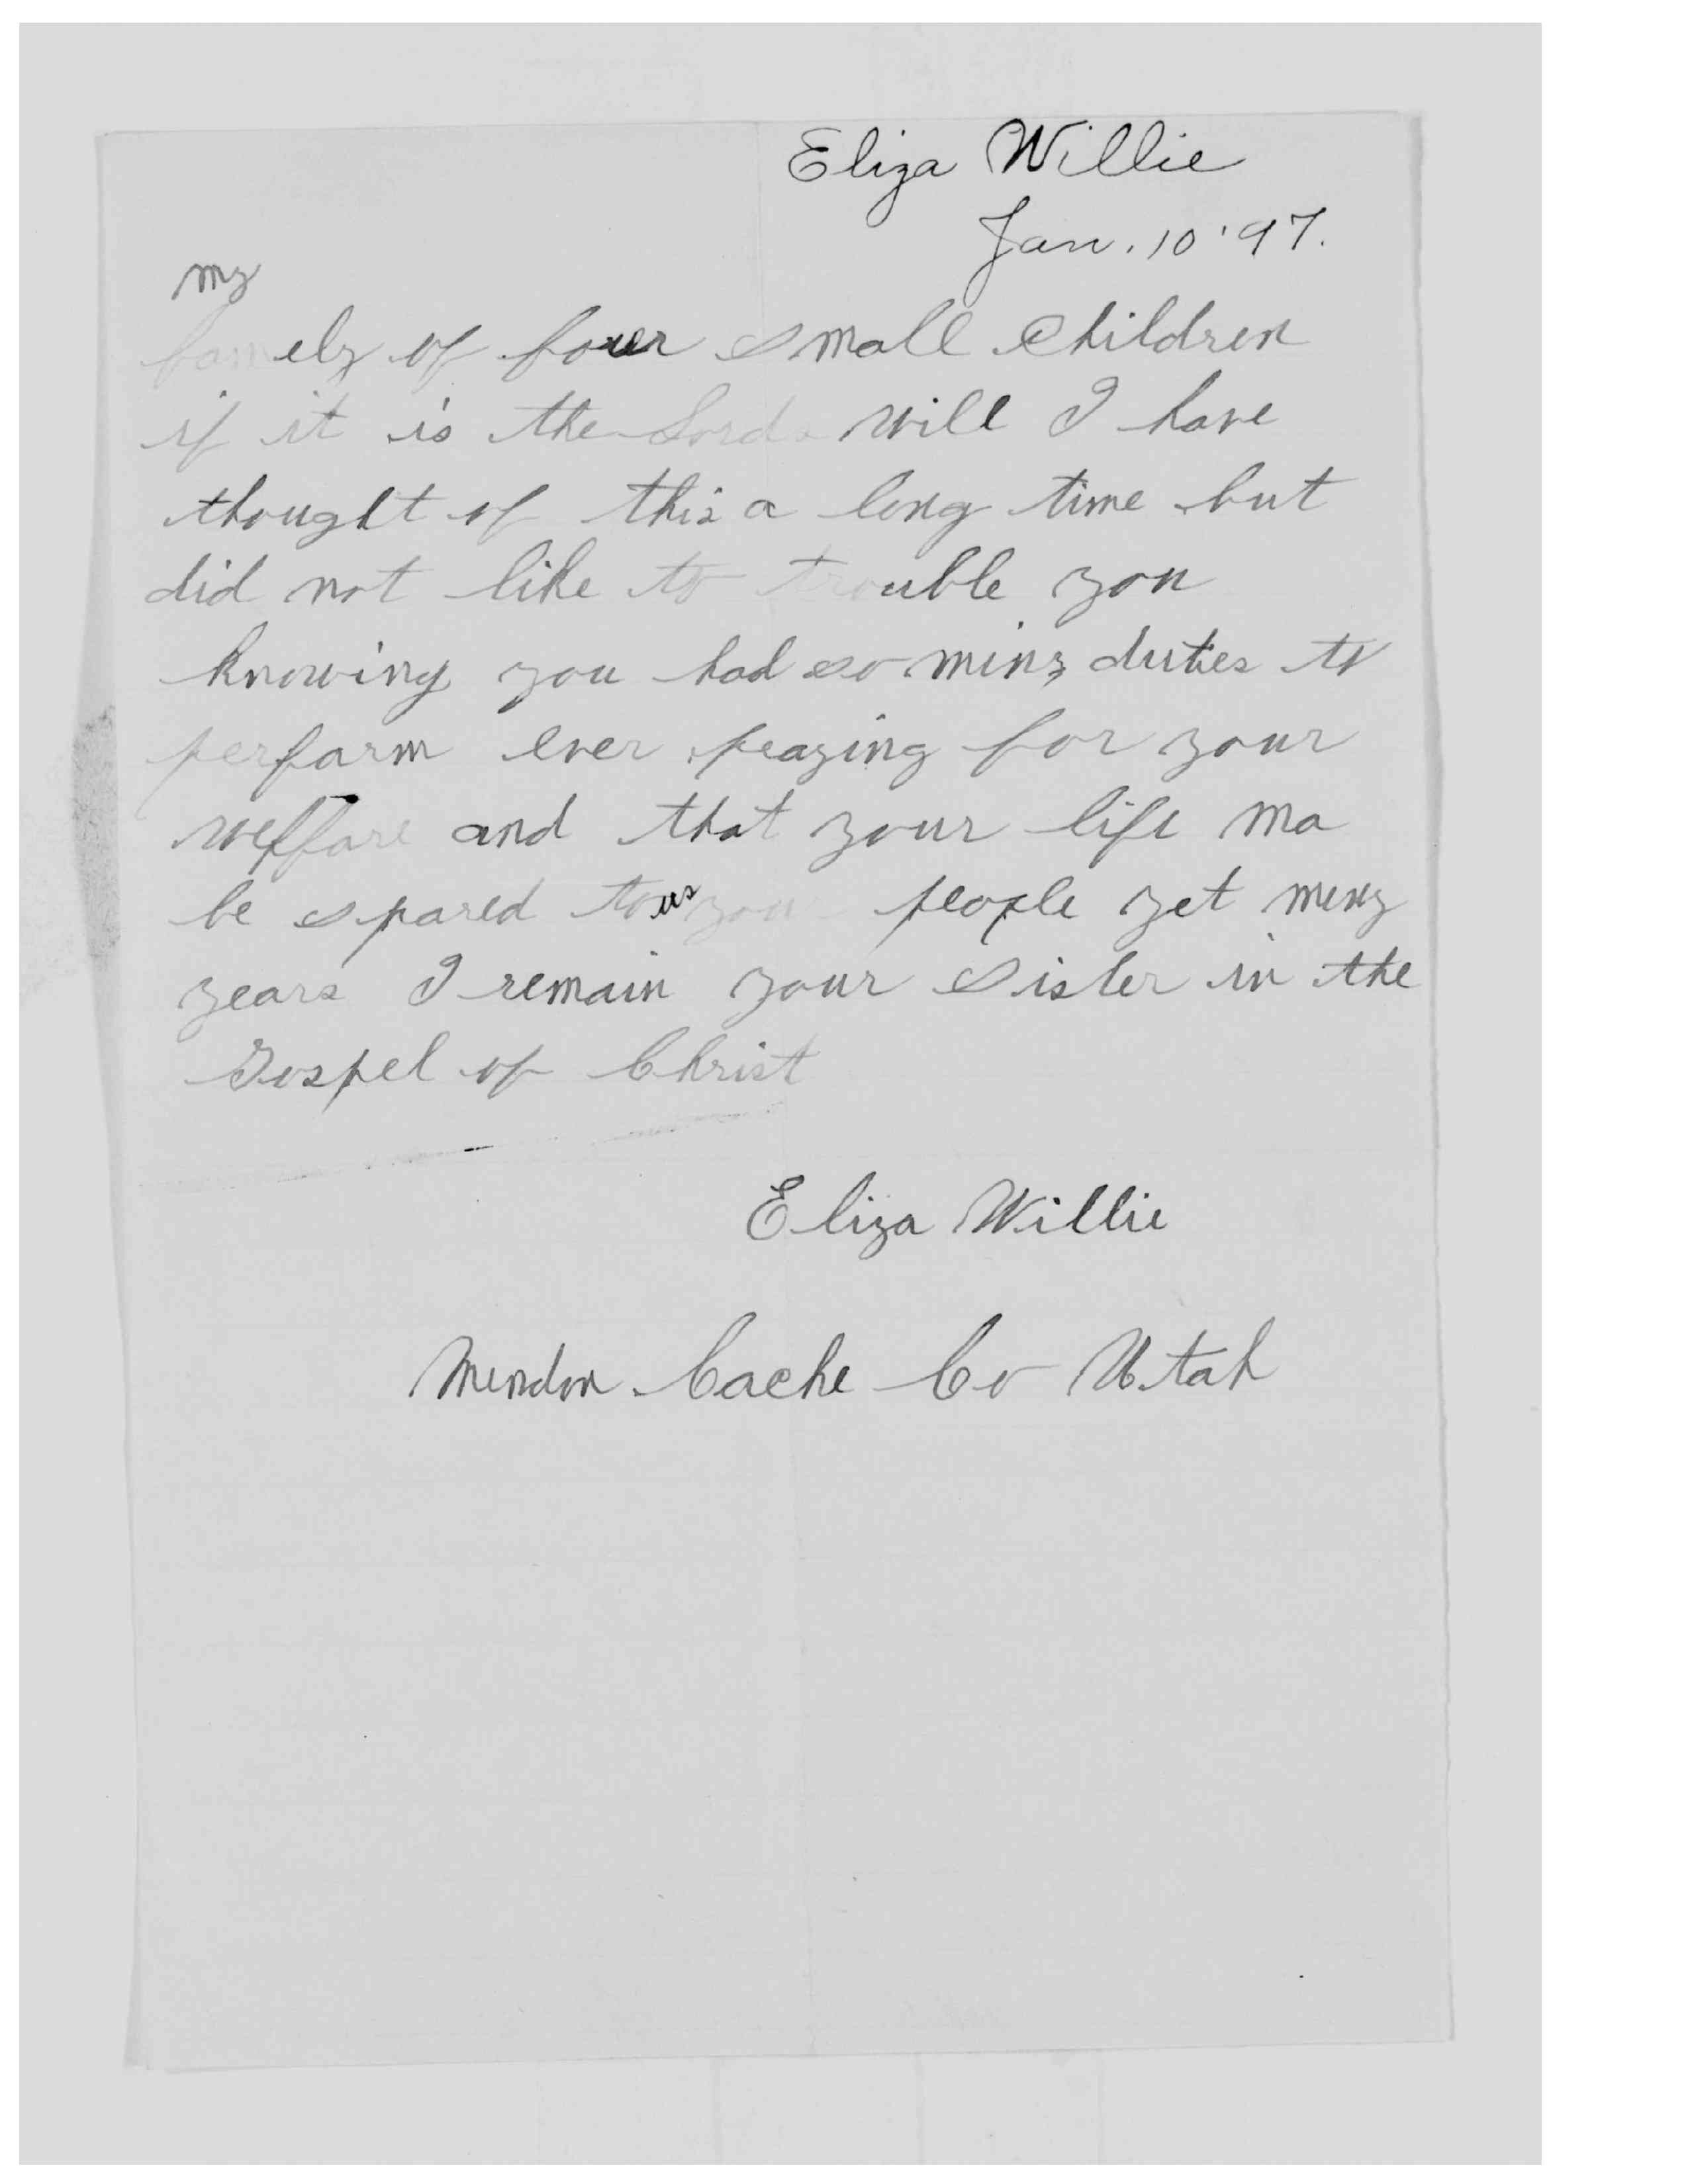 Eliza Willie
Jan. 10 '97.
my
famely of fouer small Children
if it is the Lords will I have
thought of this a long time but
did not like to trouble you
knowing you had so miny duties to
perform ever praying for your
welfare and that your life ma
be spared to us your people yet meny
years I remain your Sister in the
Gospel of Christ
Eliza Willie
Mendon Cache Co Utah